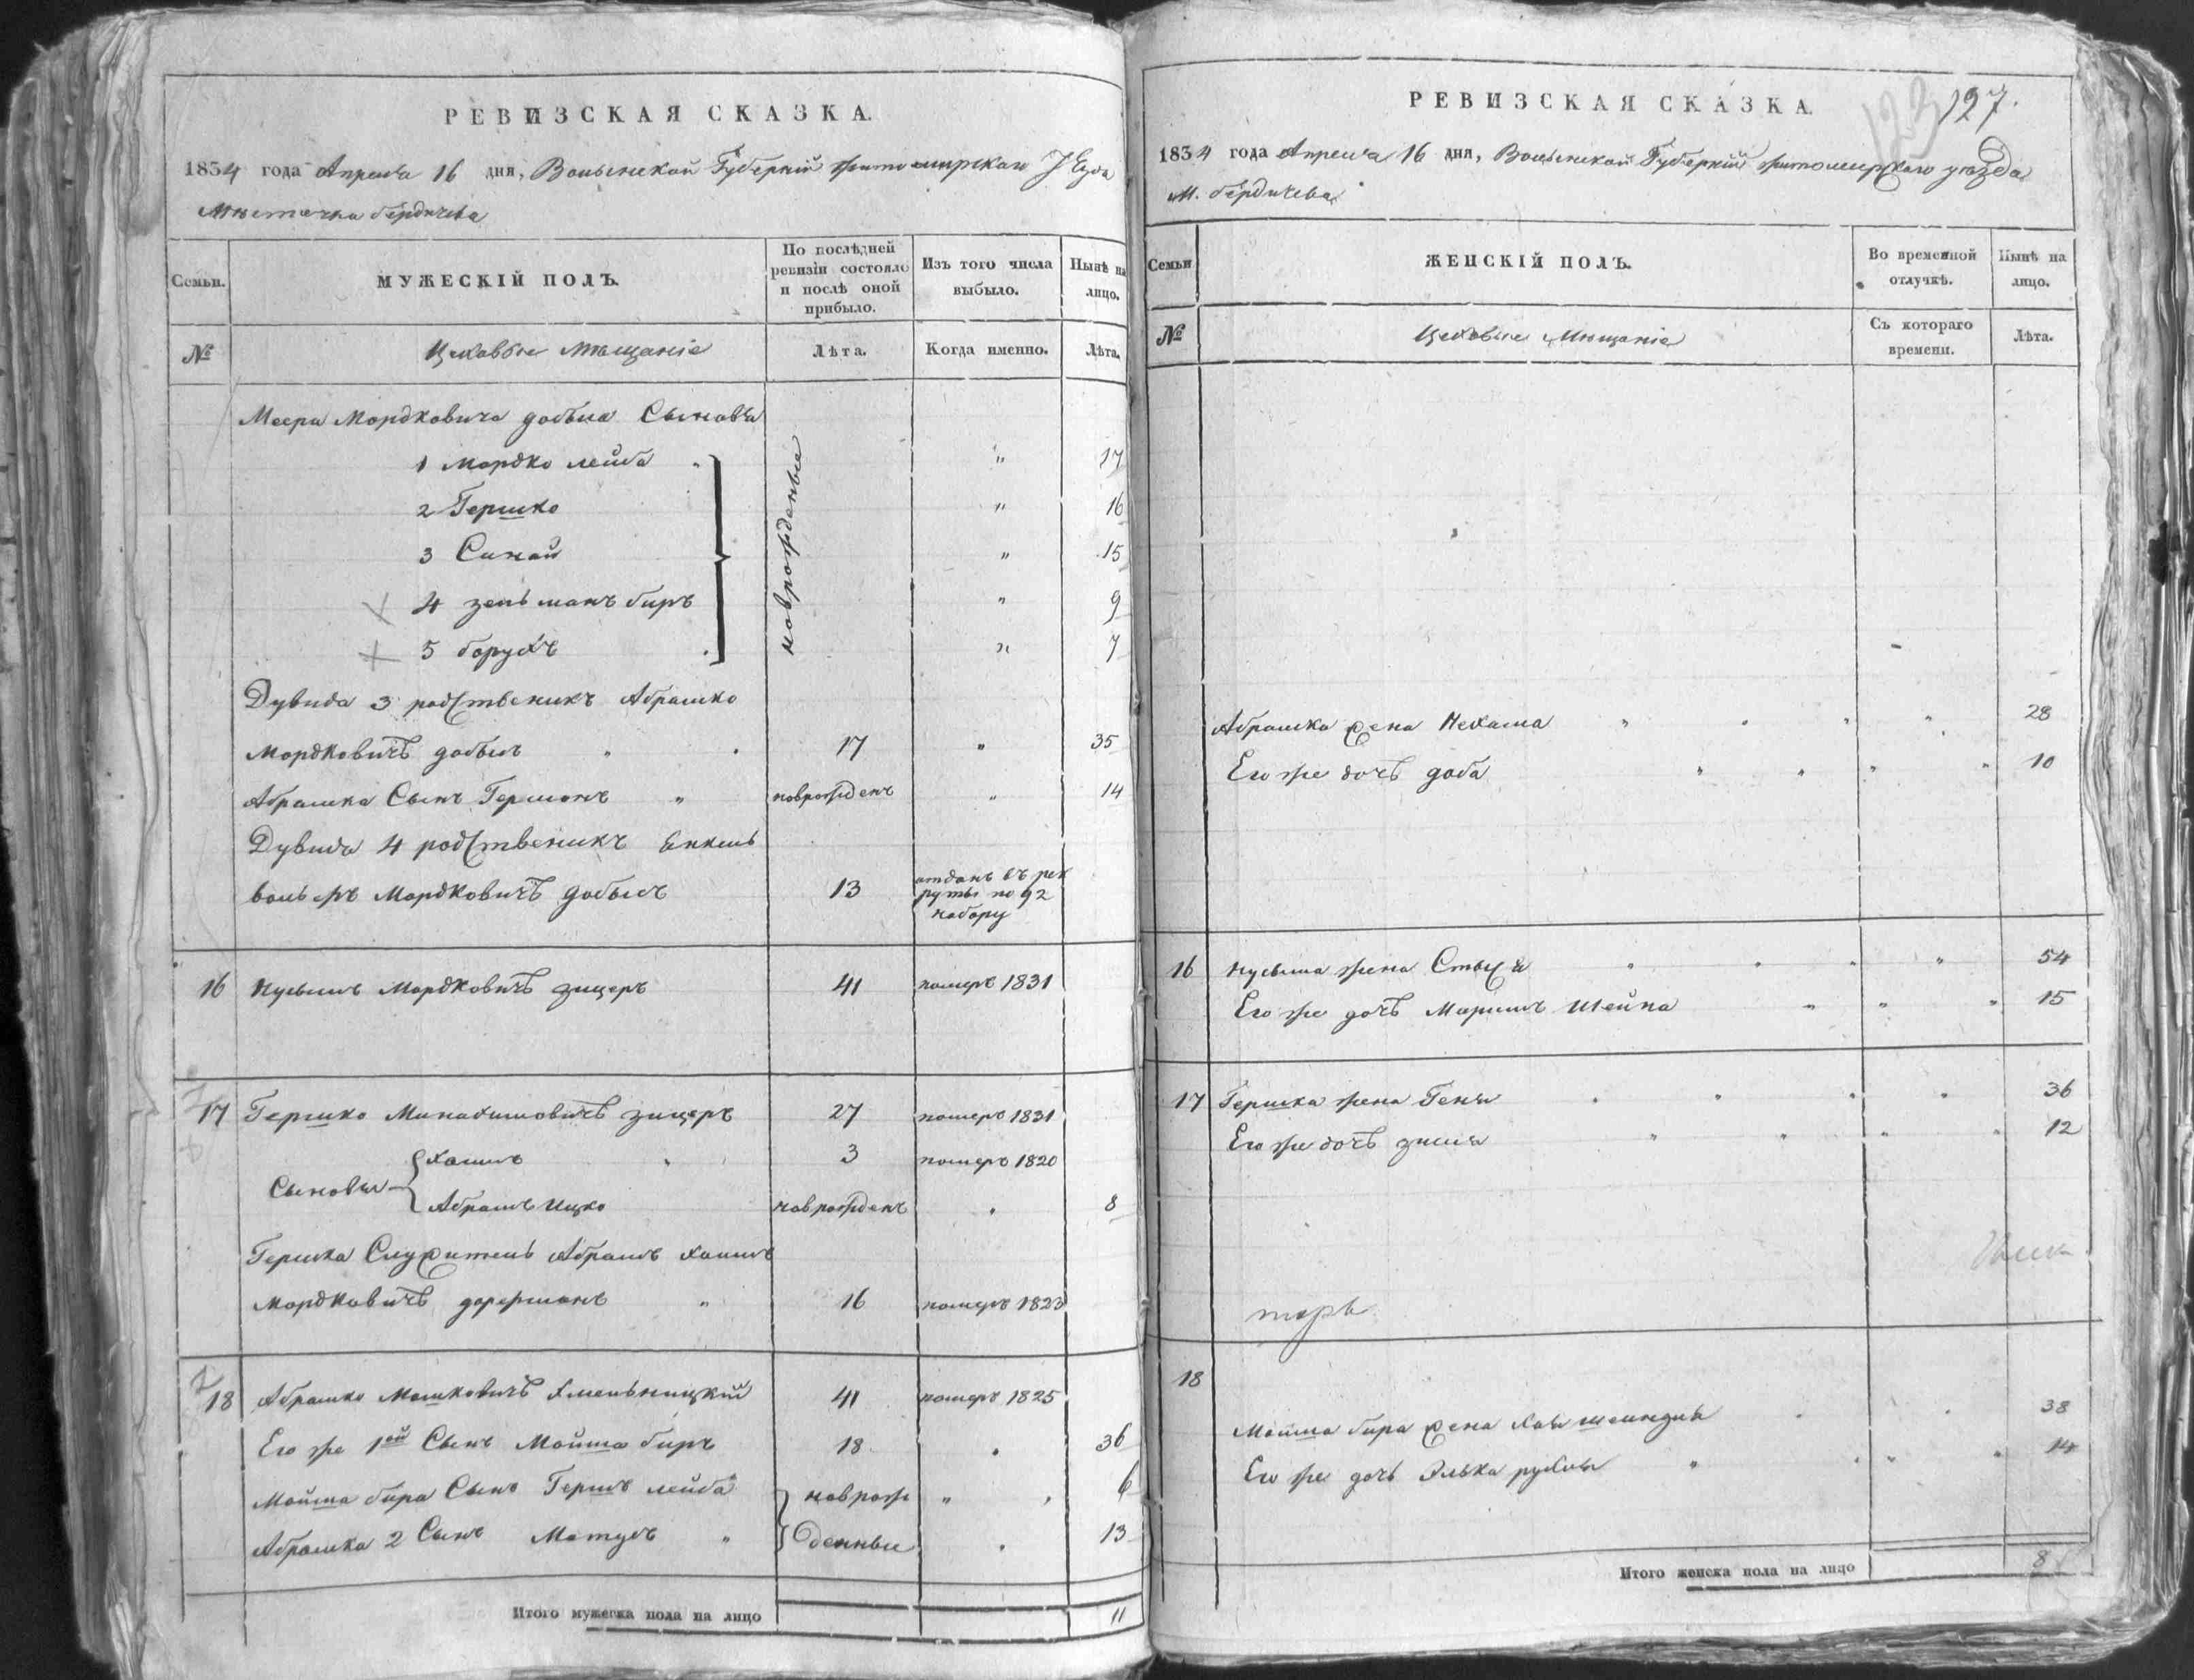 РЕВИЗСКАЯ СКАЗКА.
1834 года Апреля 16 дня, Волынской Губерніи Житомирскаго уезда
Мѣстечка бердичева
Семьи.
МУЖЕСКІЙ ПОЛЪ.
По послѣдней ревизіи состояло и послѣ оной прибыло.
Изъ того числа выбыло.
Нынѣ на лицо.
№
Цеховые Мѣщаніе
Лѣта.
Когда именно.
Лѣта.
Меера Мордковича добыса Сыновья
новорожденые
1 Мордко лейба " 17
2 Гершко " 16
3 Синай " 15
4 зельманъ биръ " 9
5 борухъ " 7
Дувида 3 родственикъ Абрашко
Мордковичъ добысъ 17 " 35
Абрашка Сынъ Гершонъ " новрожденъ " 14
Дувида 4 родственикъ
Мордковичъ добысъ 13 отданъ въ рек
руты по 92
набору
16 Нусымъ Мордковичъ зицеръ 41 померъ 1831
17 Гершко Минахимовичъ зицеръ 27 померъ 1831
Сыновья
Хаимъ 3 померъ 1820
Абрамъ Ицко новрожденъ " 8
Гершка Служитель Абрамъ Хаимъ
Мордковичъ " 16 померъ 1823
18 Абрашко Мошковичъ Хмельницкій 41 померъ 1825
Его же 1ой Сынъ Мойша биръ 18 " 36
Мойша бира Сынъ Гершъ лейба новрож " 6
Абрашка 2 Сынъ Матусъ " денные " 13
Итого мужеска пола на лицо 11
РЕВИЗСКАЯ СКАЗКА.
123 127.
1834 года Апреля 16 дня, Волынской Губерніи Житомирскаго уезда
М. бердичева
Семьи
ЖЕНСКІЙ ПОЛЪ.
Во временной отлучкѣ.
Нынѣ на лицо.
№
Цеховые Мѣщаніе
Съ котораго времени.
Лѣта.
Абрашка жена Нехама " " " " 28
Его же дочь доба " " " " 10
16 Нусыма жена Стыся " " " " 54
Его же дочь Маріимъ Шейна " " " 15
17 Гершка жена Геня " " " " 36
Его же дочь зисля " " " " 12
18
Мойша бира жена Хая шейндля " " 38
Его же дочь Элька рухля " " " 14
Итого женска пола на лицо 8